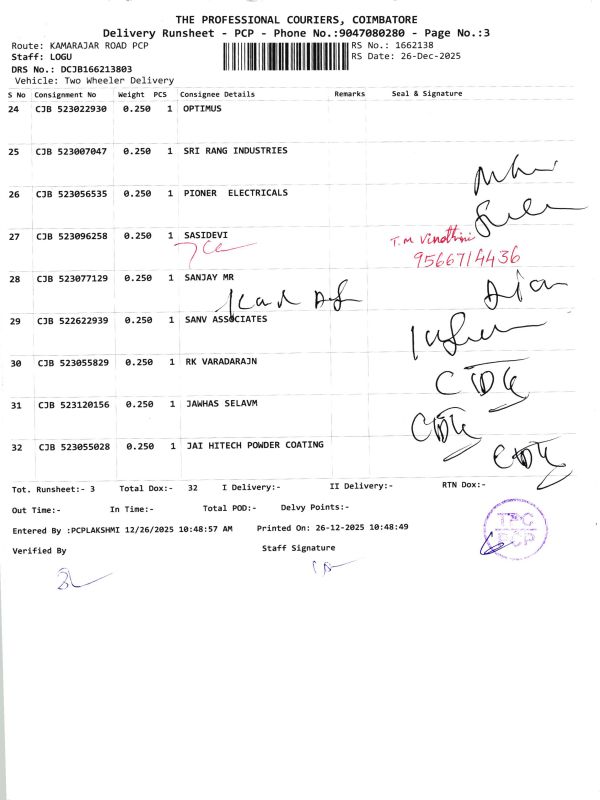 THE PROFESSIONAL COURIERS, COIMBATORE
Delivery Runsheet - PCP - Phone No.:9047080280 - Page No.:3
Route: KAMARAJAR ROAD PCP RS No.: 1662138
Staff: LOGU RS Date: 26-Dec-2025
DRS No.: DCJB166213803
Vehicle: Two Wheeler Delivery
S No Consignment No Weight PCS Consignee Details Remarks Seal & Signature
24 CJB 523022930 0.250 1 OPTIMUS
25 CJB 523007047 0.250 1 SRI RANG INDUSTRIES
26 CJB 523056535 0.250 1 PIONER ELECTRICALS
27 CJB 523096258 0.250 1 SASIDEVI T.M Vinothini
9566714436
28 CJB 523077129 0.250 1 SANJAY MR
29 CJB 522622939 0.250 1 SANV ASSOCIATES
30 CJB 523055829 0.250 1 RK VARADARAJN
31 CJB 523120156 0.250 1 JAWHAS SELAVM
32 CJB 523055028 0.250 1 JAI HITECH POWDER COATING
Tot. Runsheet:- 3 Total Dox:- 32 I Delivery:- II Delivery:- RTN Dox:-
Out Time:- In Time:- Total POD:- Delvy Points:-
Entered By :PCPLAKSHMI 12/26/2025 10:48:57 AM Printed On: 26-12-2025 10:48:49
TPC
PCP
Verified By Staff Signature